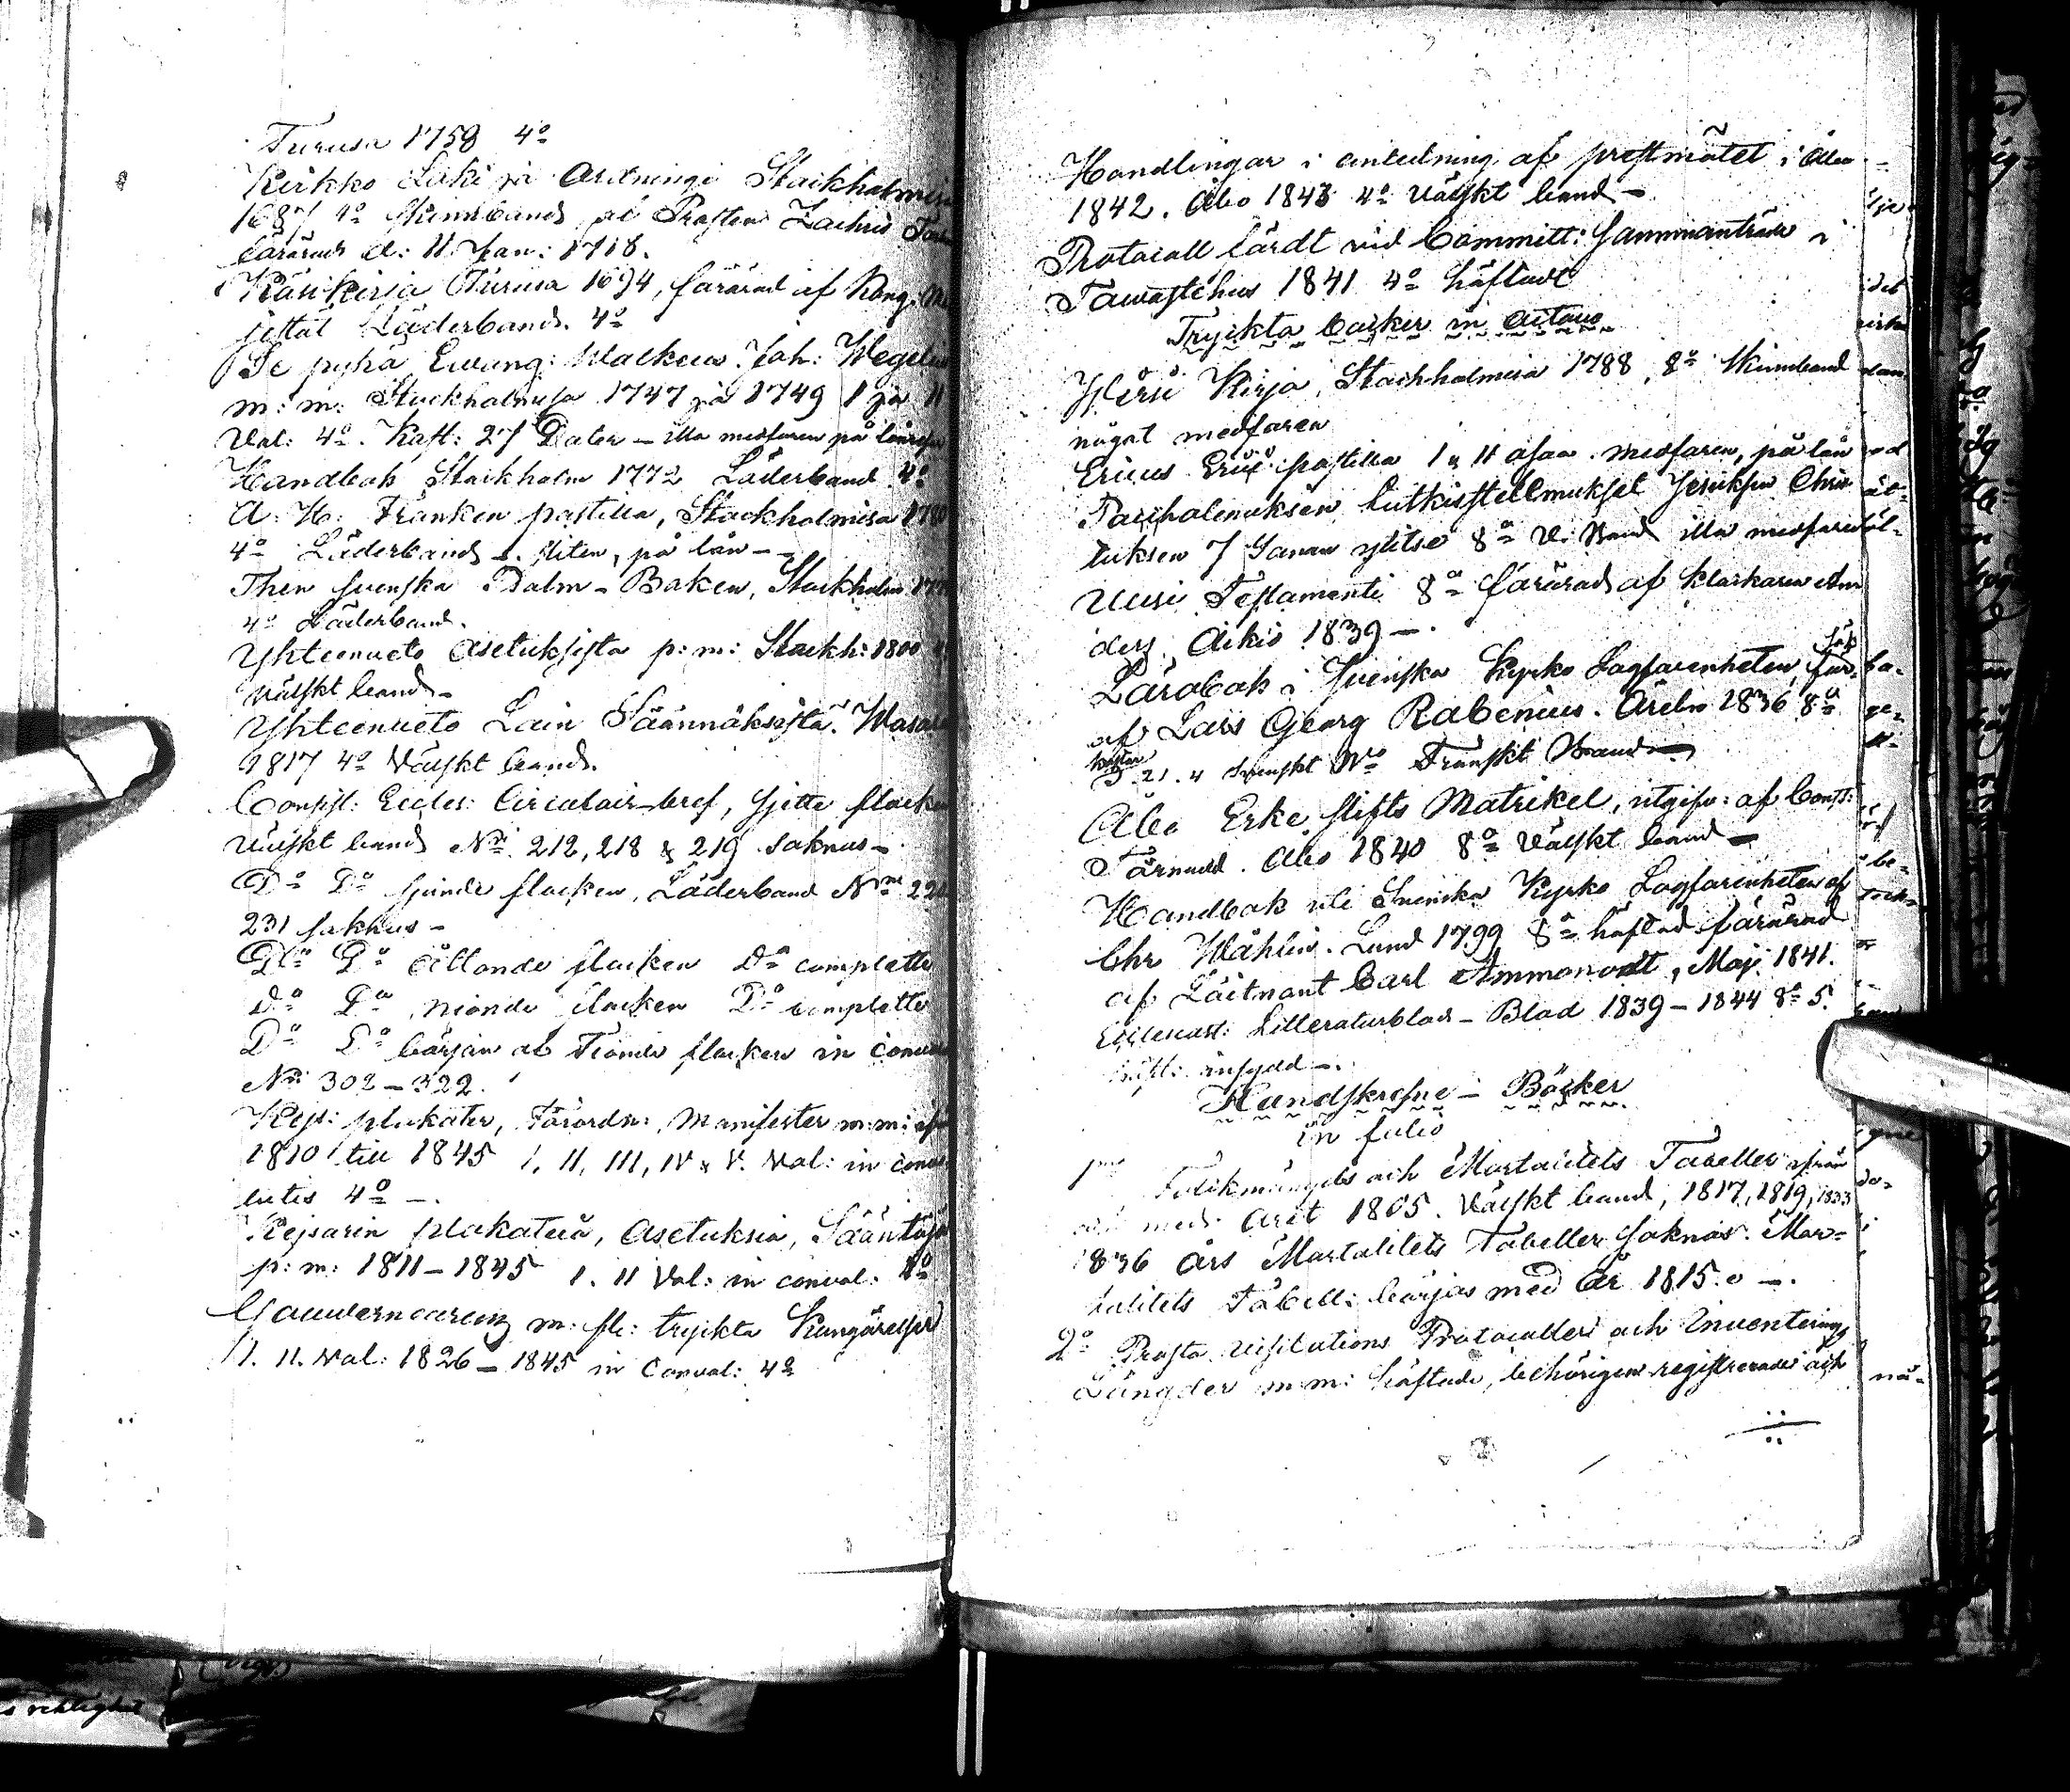 Turusa 1758 4o
Kirkko Laki ja Ordningi Stockholmisa
1687 4o Skinnband, af Prosten Zachris
förärad d: 11 Jan: 1718.
Käsikirja Turusa 1694, förärad af Kong. Ma
jestät Läderband. 4o
Se pyhä Ewang: Walkeus. Joh: Wegelius
m: m: Stockholmisa 1747 ja 1749 I ja II
Vol: 4o. Kost: 27 Daler – illa medfaren på
Handbok, Stockholm 1772 Läderband 4o
A: H: Franken postilla, Stockholmisa 1780
4o Läderband –. sliten, på lån –
Then Svenska Psalm-Boken, Stockholm
4o Läderband.
Yhteenveto Asetuksista p: m: Stockh: 1800
Wälskt band –
Yhteenveto Lain Säännöksistä. Wasasa
1817 4o Wälskt band.
Consist: Eccles: Circulair-bref, Sjette flocken
Wälskt band No. 212, 218 & 219 saknas –
Do Do Sjunde flocken, Läderband No
231 saknas –
Do Do Ållonde flocken Do complette
Do Do nionde flocken Do complette
Do Do början af Tionde flocken in
No: 302 – 322.
Kejs: plakater, Förordn:, Manifester m:m: ifrån
1810 till 1845 I, II, III, IV & V. Vol: in convo
lutis 4o –.
Kejsarin plakateia, Asetuksia,
p: m: 1811 – 1845 I. II Vol: in convol: 4o
Gouverneurens m: fl: tryckta Kungörelser
I. II. Vol: 1826 – 1845 in Convol: 4o
Handlingar i anledning af prestmötet i Åbo
1842. Åbo 1843 4o Wälskt band –
Protocoll fördt vid Committ: Sammanträde i
Tawastehus 1841 4o häftadt
Tryckta böcker in octavo
Wirsi Kirja, Stockholmisa 1788, 8o Skinnband
något medfaren
Ericus Erici postilla I & II osaa. medfaren, på lån
tuksen 7 Sanan ylitse 8o W. Band illa medfaren
Uusi Testamenti 8o förärad af klockaren And
ders. Aikio 1839 –.
Lärobok i Svenska Kyrko Lagfarenheten,
af Lars Georg Rabenius. Örebro 1836 8o
kostar 21. 4 Svenskt Franskt Band –
Åbo Erke stifts Matrikel, utgifv: af Const:
Törnudd. Åbo 1840 8o Wälskt band –
Handbok uti Svenska Kyrko Lagfarenheten af
Chr Wåhlin. Lund 1799 8o häftad förärad
af Löitnant Carl Ammondt, Maji 1841.
Ecclesiast: Litteraturblad – Blad 1839 – 1844 8o 5.
insydd –.
Handskrefne – Böcker
in folio
1mo Folkmängds och Mortalitets Tabeller ifrån
och med året 1805. Wälskt band, 1817, 1819, 1833
1836 års Mortalitets Tabeller saknas. Mor=
talitets Tabell: börjas med år 1815. –.
2o Prosta Visitations Protocoller och Inventerings
Längder m m: häftade, behörigen registrerade och